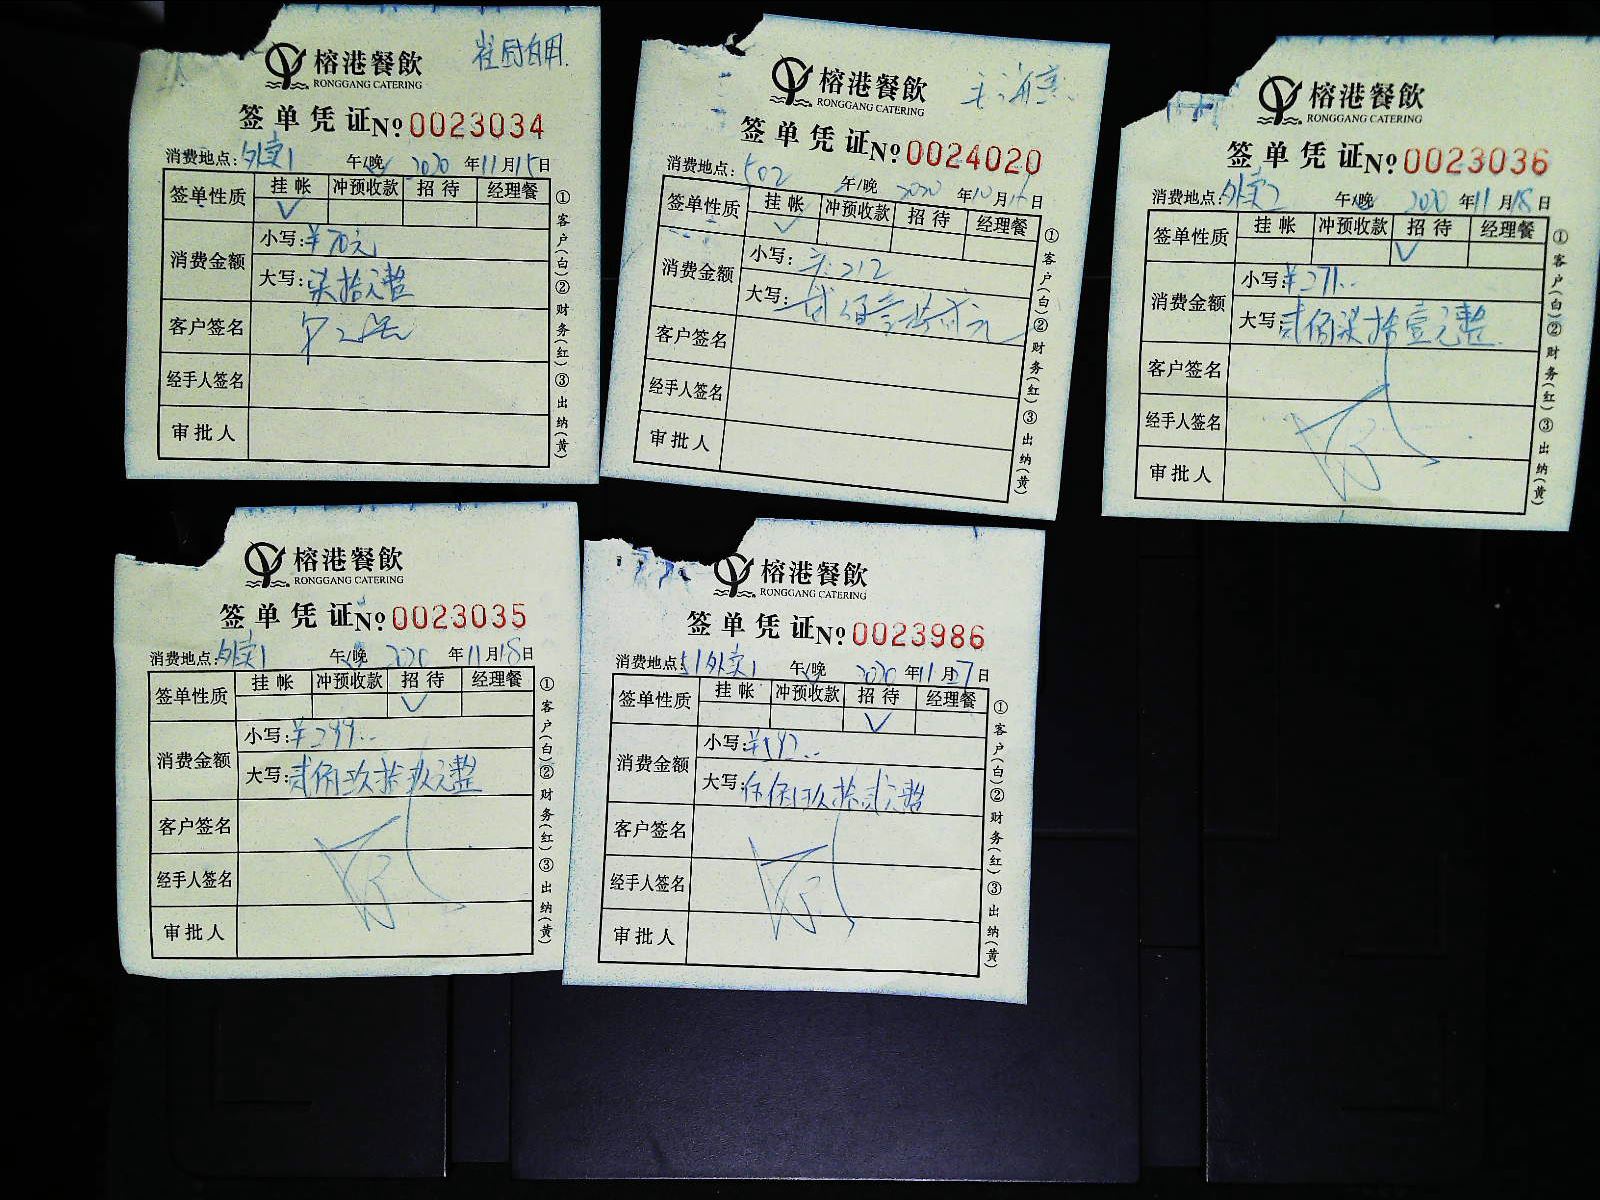 榕港餐飲
RONGGANG CATERING
崔厨自用.
签单凭证 No 0023034
消费地点: 外卖1 午/晚 2020 年 11 月 15 日
签单性质 挂帐 冲预收款 招待 经理餐
✓
消费金额 小写: ¥70元
大写: 柒拾元整
客户签名
经手人签名
审批人
①客户(白)②财务(红)③出纳(黄)
榕港餐飲
RONGGANG CATERING
签单凭证 No 0024020
消费地点: 502 午/晚 2020 年 10 月 日
签单性质 挂帐 冲预收款 招待 经理餐
✓
消费金额 小写: ¥:212
大写: 贰佰壹拾贰元
客户签名
经手人签名
审批人
①客户(白)②财务(红)③出纳(黄)
榕港餐飲
RONGGANG CATERING
签单凭证 No 0023036
消费地点: 外卖2 午/晚 2020 年 11 月 18 日
签单性质 挂帐 冲预收款 招待 经理餐
✓
消费金额 小写: ¥271..
大写: 贰佰柒拾壹元整
客户签名
经手人签名
审批人
①客户(白)②财务(红)③出纳(黄)
榕港餐飲
RONGGANG CATERING
签单凭证 No 0023035
消费地点: 外卖1 午/晚 2020 年 11 月 18 日
签单性质 挂帐 冲预收款 招待 经理餐
✓
消费金额 小写: ¥299..
大写: 贰佰玖拾玖元整
客户签名
经手人签名
审批人
①客户(白)②财务(红)③出纳(黄)
榕港餐飲
RONGGANG CATERING
签单凭证 No 0023986
消费地点: 外卖1 午/晚 2020 年 11 月 7 日
签单性质 挂帐 冲预收款 招待 经理餐
✓
消费金额 小写: ¥592..
大写: 伍佰玖拾贰元整
客户签名
经手人签名
审批人
①客户(白)②财务(红)③出纳(黄)